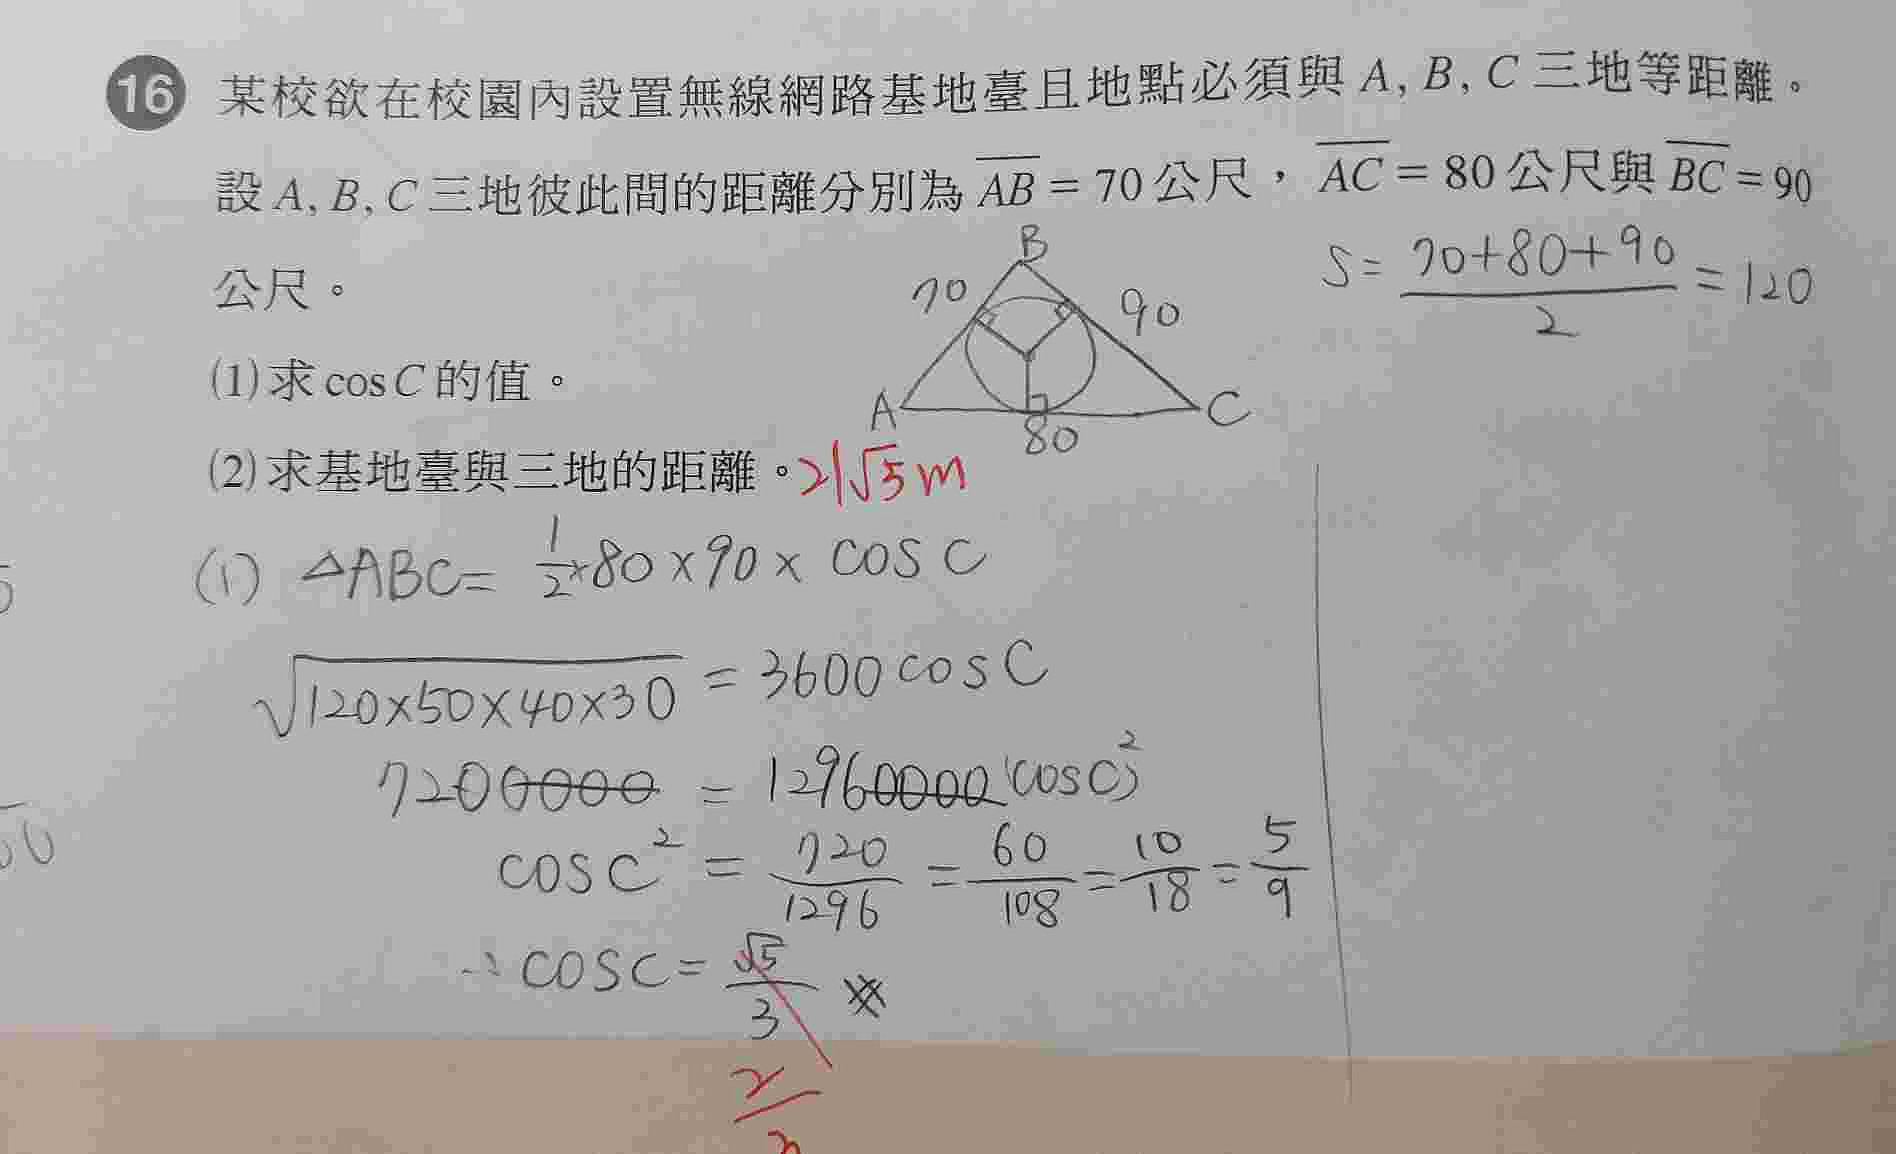 16 某校欲在校園內設置無線網路基地臺且地點必須與 A, B, C 三地等距離。
設 A, B, C 三地彼此間的距離分別為 AB = 70 公尺，AC = 80 公尺與 BC = 90
公尺。
B
70
90
A
80
C
S = (70+80+90)/2 = 120
(1) 求 cos C 的值。
(2) 求基地臺與三地的距離。21√5 m
(1) △ABC = 1/2 × 80 × 90 × cos C
√(120×50×40×30) = 3600 cos C
7200000 = 12960000 (cos C)²
cos C² = 720/1296 = 60/108 = 10/18 = 5/9
∴ cos C = √5/3 ※
2